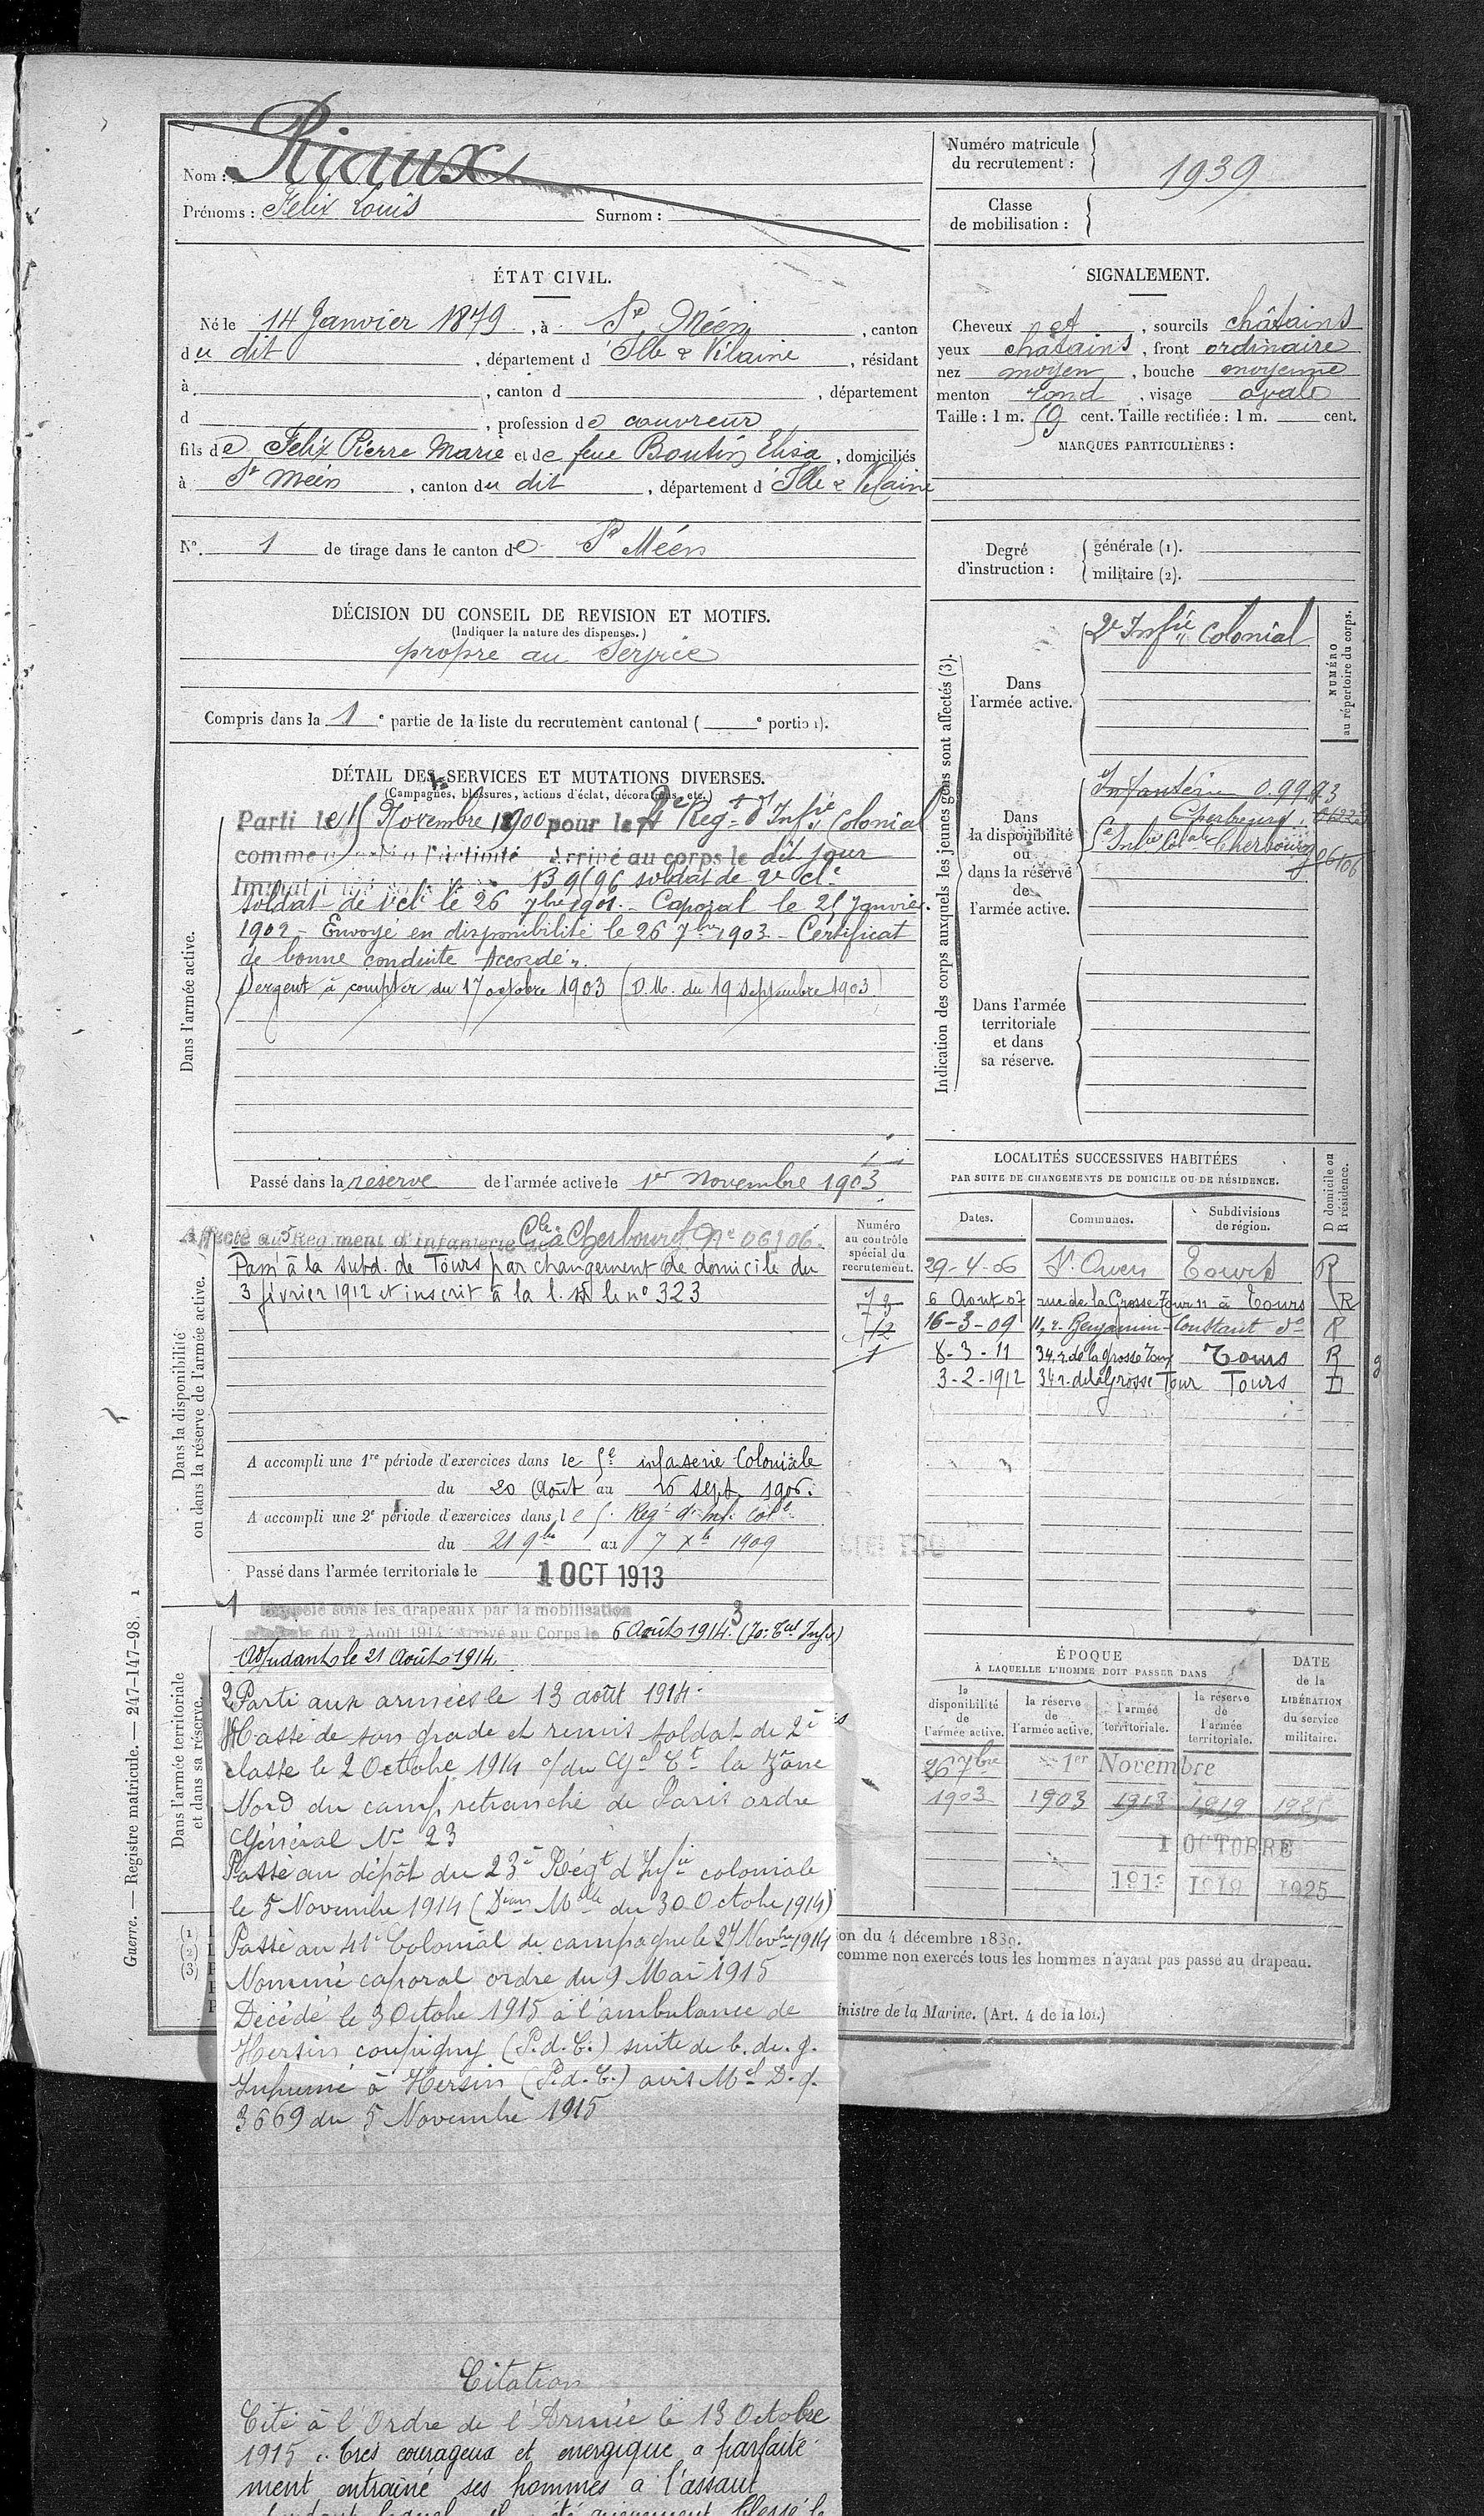 Nom : Riaux
Prénoms : Felix Louis Surnom :
Numéro matricule
du recrutement : 1939
Classe
de mobilisation :
ÉTAT CIVIL.
Né le 14 Janvier 1879, à St Méen, canton
du dit, département d Ille & Vilaine, résidant
à , canton d , département
d , profession de couvreur
fils de Felix Pierre Marie et de feue Boutin Elisa, domiciliés
à St Méen, canton du dit, département d Ille & Vilaine
N° 1 de tirage dans le canton de St Méen
SIGNALEMENT.
Cheveux et, sourcils châtains
yeux chatains, front ordinaire
nez moyen, bouche moyenne
menton rond, visage ovale
Taille : 1 m. 59 cent. Taille rectifiée : 1 m. cent.
MARQUES PARTICULIÈRES :
Degré
d'instruction :
générale (1).
militaire (2).
DÉCISION DU CONSEIL DE REVISION ET MOTIFS.
(Indiquer la nature des dispenses.)
propre au Service
Compris dans la 1e partie de la liste du recrutement cantonal ( e portion).
DÉTAIL DES SERVICES ET MUTATIONS DIVERSES.
(Campagnes, blessures, actions d'éclat, décorations, etc.)
Dans l'armée active.
Parti le 15 Novembre 1900 pour le 2e Regt d'Infie Colonial
comme Arrivé au corps le dit jour
soldat de 2e cl.
Soldat de 1e cl. le 26 7bre 1901. Caporal le 25 Janvier
1902 - Envoyé en disponibilité le 26 7bre 1903 - Certificat
de bonne conduite Accordé.
Sergent à compter du 17 octobre 1903 (D.M. du 19 Septembre 1903)
Passé dans la réserve de l'armée active le 1er Novembre 1903
Indication des corps auxquels les jeunes gens sont affectés (3).
NUMÉRO
au répertoire du corps.
Dans
l'armée active.
2e Infie Colonial
Dans
la disponibilité
ou
dans la réserve
de
l'armée active.
Infanterie
Cherbourg
Cherbourg 06106
Dans l'armée
territoriale
et dans
sa réserve.
Dans la disponibilité
ou dans la réserve de l'armée active.
Affecté au 5 Régiment d'Infanterie Cle à Cherbourg N° 06106.
Passé à la subd. de Tours par changement de domicile du
3 février 1912 et inscrit à la l. le n° 323
Numéro
au contrôle
spécial du
recrutement.
A accompli une 1re période d'exercices dans le 5e infanterie Coloniale
du 20 Août au 16 sept. 1906.
A accompli une 2e période d'exercices dans le 5e Regt d'Inf. Colle
du 21 9bre au 7 Xbre 1909
Passé dans l'armée territoriale le 1 OCT 1913
LOCALITÉS SUCCESSIVES HABITÉES
PAR SUITE DE CHANGEMENTS DE DOMICILE OU DE RÉSIDENCE.
D domicile ou
R résidence.
Dates. Communes. Subdivisions
de région.
29-4-06 St Ouen Tours R
6 Aout 07 rue de la Grosse Tour 11 à Tours R
16-3-09 11, r. Benjamin-Constant do R
8-3-11 34 r. de la Grosse Tour Tours R
3-2-1912 34 r. de la Grosse Tour Tours D
Dans l'armée territoriale
et dans sa réserve.
Rappelé sous les drapeaux par la mobilisation
du 2 Août 1914. Arrivé au Corps le 6 Août 1914 (70e Tal Infie)
Adjudant le 21 Août 1914
Parti aux armées le 13 août 1914.
Cassé de son grade et remis soldat de 2e
classe le 2 Octobre 1914 o/ du Gal Ct la Zone
Nord du camp retranché de Paris ordre
Général N° 23
Passé au dépôt du 23e Régt d'Infie coloniale
le 5 Novembre 1914 (Dion Mlle du 30 Octobre 1914)
Passé au 41e Colonial de campagne le 27 Novbre 1914
Nommé caporal ordre du 9 Mai 1915
Décédé le 3 Octobre 1915 à l'ambulance de
Hersin coupigny (P.d.C.) suite de b. de g.
Inhumé à Hersin (P.d.C.) avis Mel D.g.
3669 du 5 Novembre 1915
ÉPOQUE
À LAQUELLE L'HOMME DOIT PASSER DANS
DATE
de la
LIBÉRATION
du service
militaire.
la
disponibilité
de
l'armée active.
la réserve
de
l'armée active.
l'armée
territoriale.
la réserve
de
l'armée
territoriale.
26 7bre 1er Novembre
1903 1903 1913 1919 1925
1 OCTOBRE
1913 1919 1925
Guerre. — Registre matricule. — 247-147-98. 1
(1)
(2)
(3)
on du 4 décembre 1889.
comme non exercés tous les hommes n'ayant pas passé au drapeau.
inistre de la Marine. (Art. 4 de la loi.)
Citation
Cité à l'Ordre de l'Armée le 13 Octobre
1915 « Très courageux et energique a parfaite
ment entrainé ses hommes a l'assaut